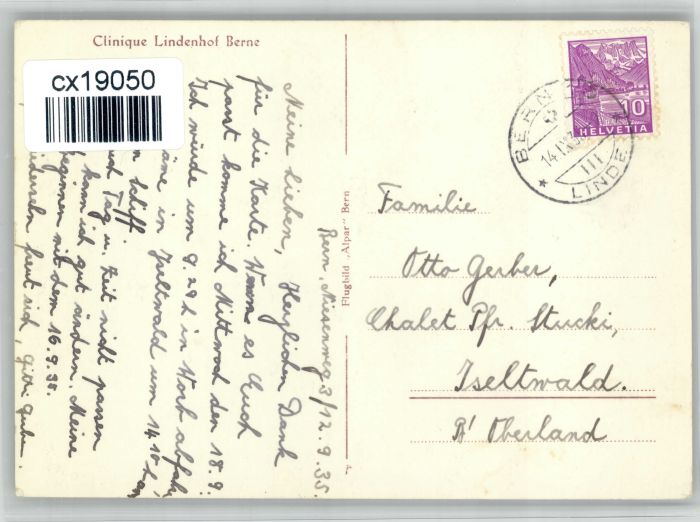 Clinique Lindenhof Berne
cx19050
Bern, Niesenweg 3/12.9.35.
Meine Lieben, Herzlichen Dank
für die Karte. Wenn es Euch
passt komme ich Mittwoch den 18.9.
Ich würde um 9.29 h in Worb abfah
äme in Iseltwald um 14.15 h an
Schiff.
Tag u. Zeit nicht passen
kann ich gut ändern. Meine
beginnen mit dem 16.9.35.
iedersehn freut sich,
Flugbild „Alpar" Bern
HELVETIA
10
BERN
14.IX.35
III
LINDE
Familie
Otto Gerber,
Chalet Pfr. Stucki,
Iseltwald.
B' Oberland